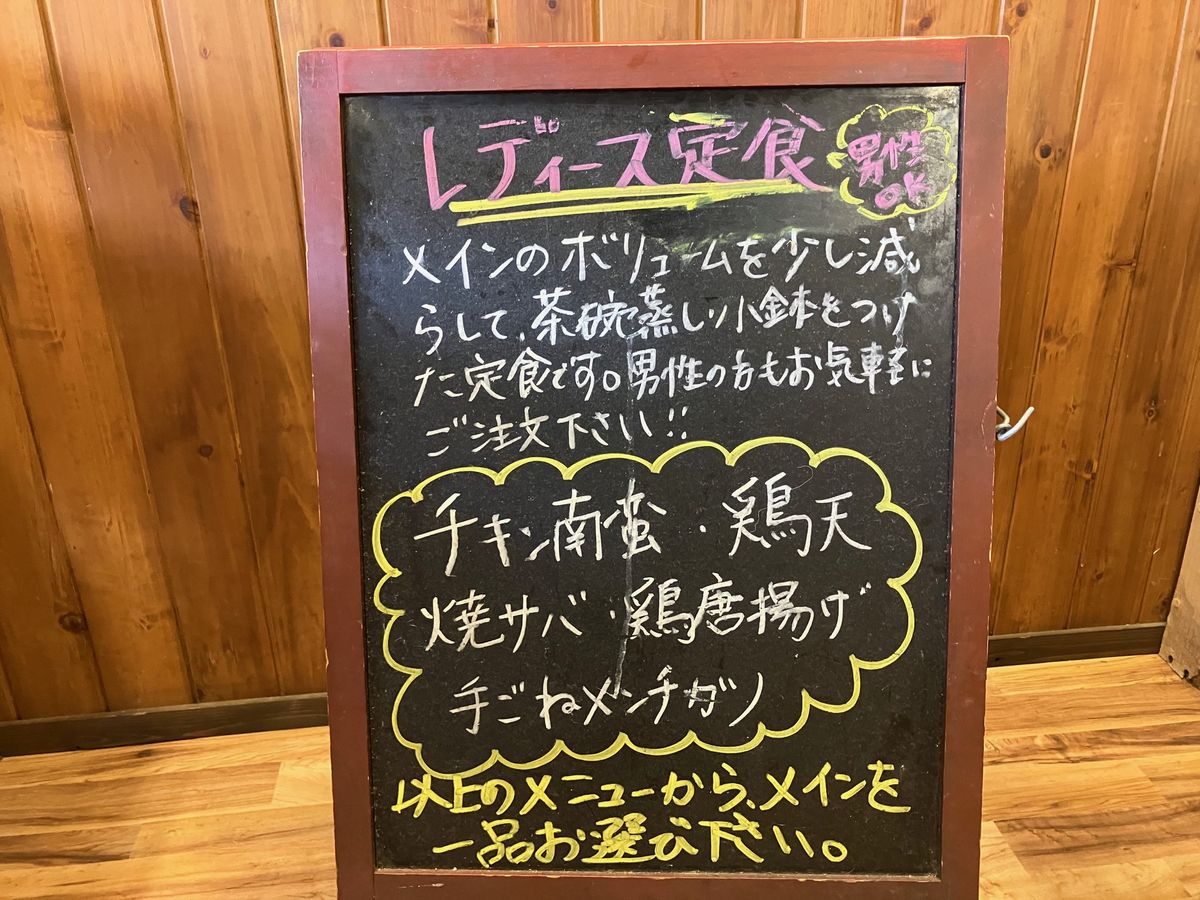 レディース定食
男性
OK
メインのボリュームを少し減
らして、茶碗蒸し、小鉢をつけ
た定食です。男性の方もお気軽に
ご注文下さい!!
チキン南蛮・鶏天
焼サバ・鶏唐揚げ
手ごねメンチカツ
以上のメニューから、メインを
一品お選び下さい。